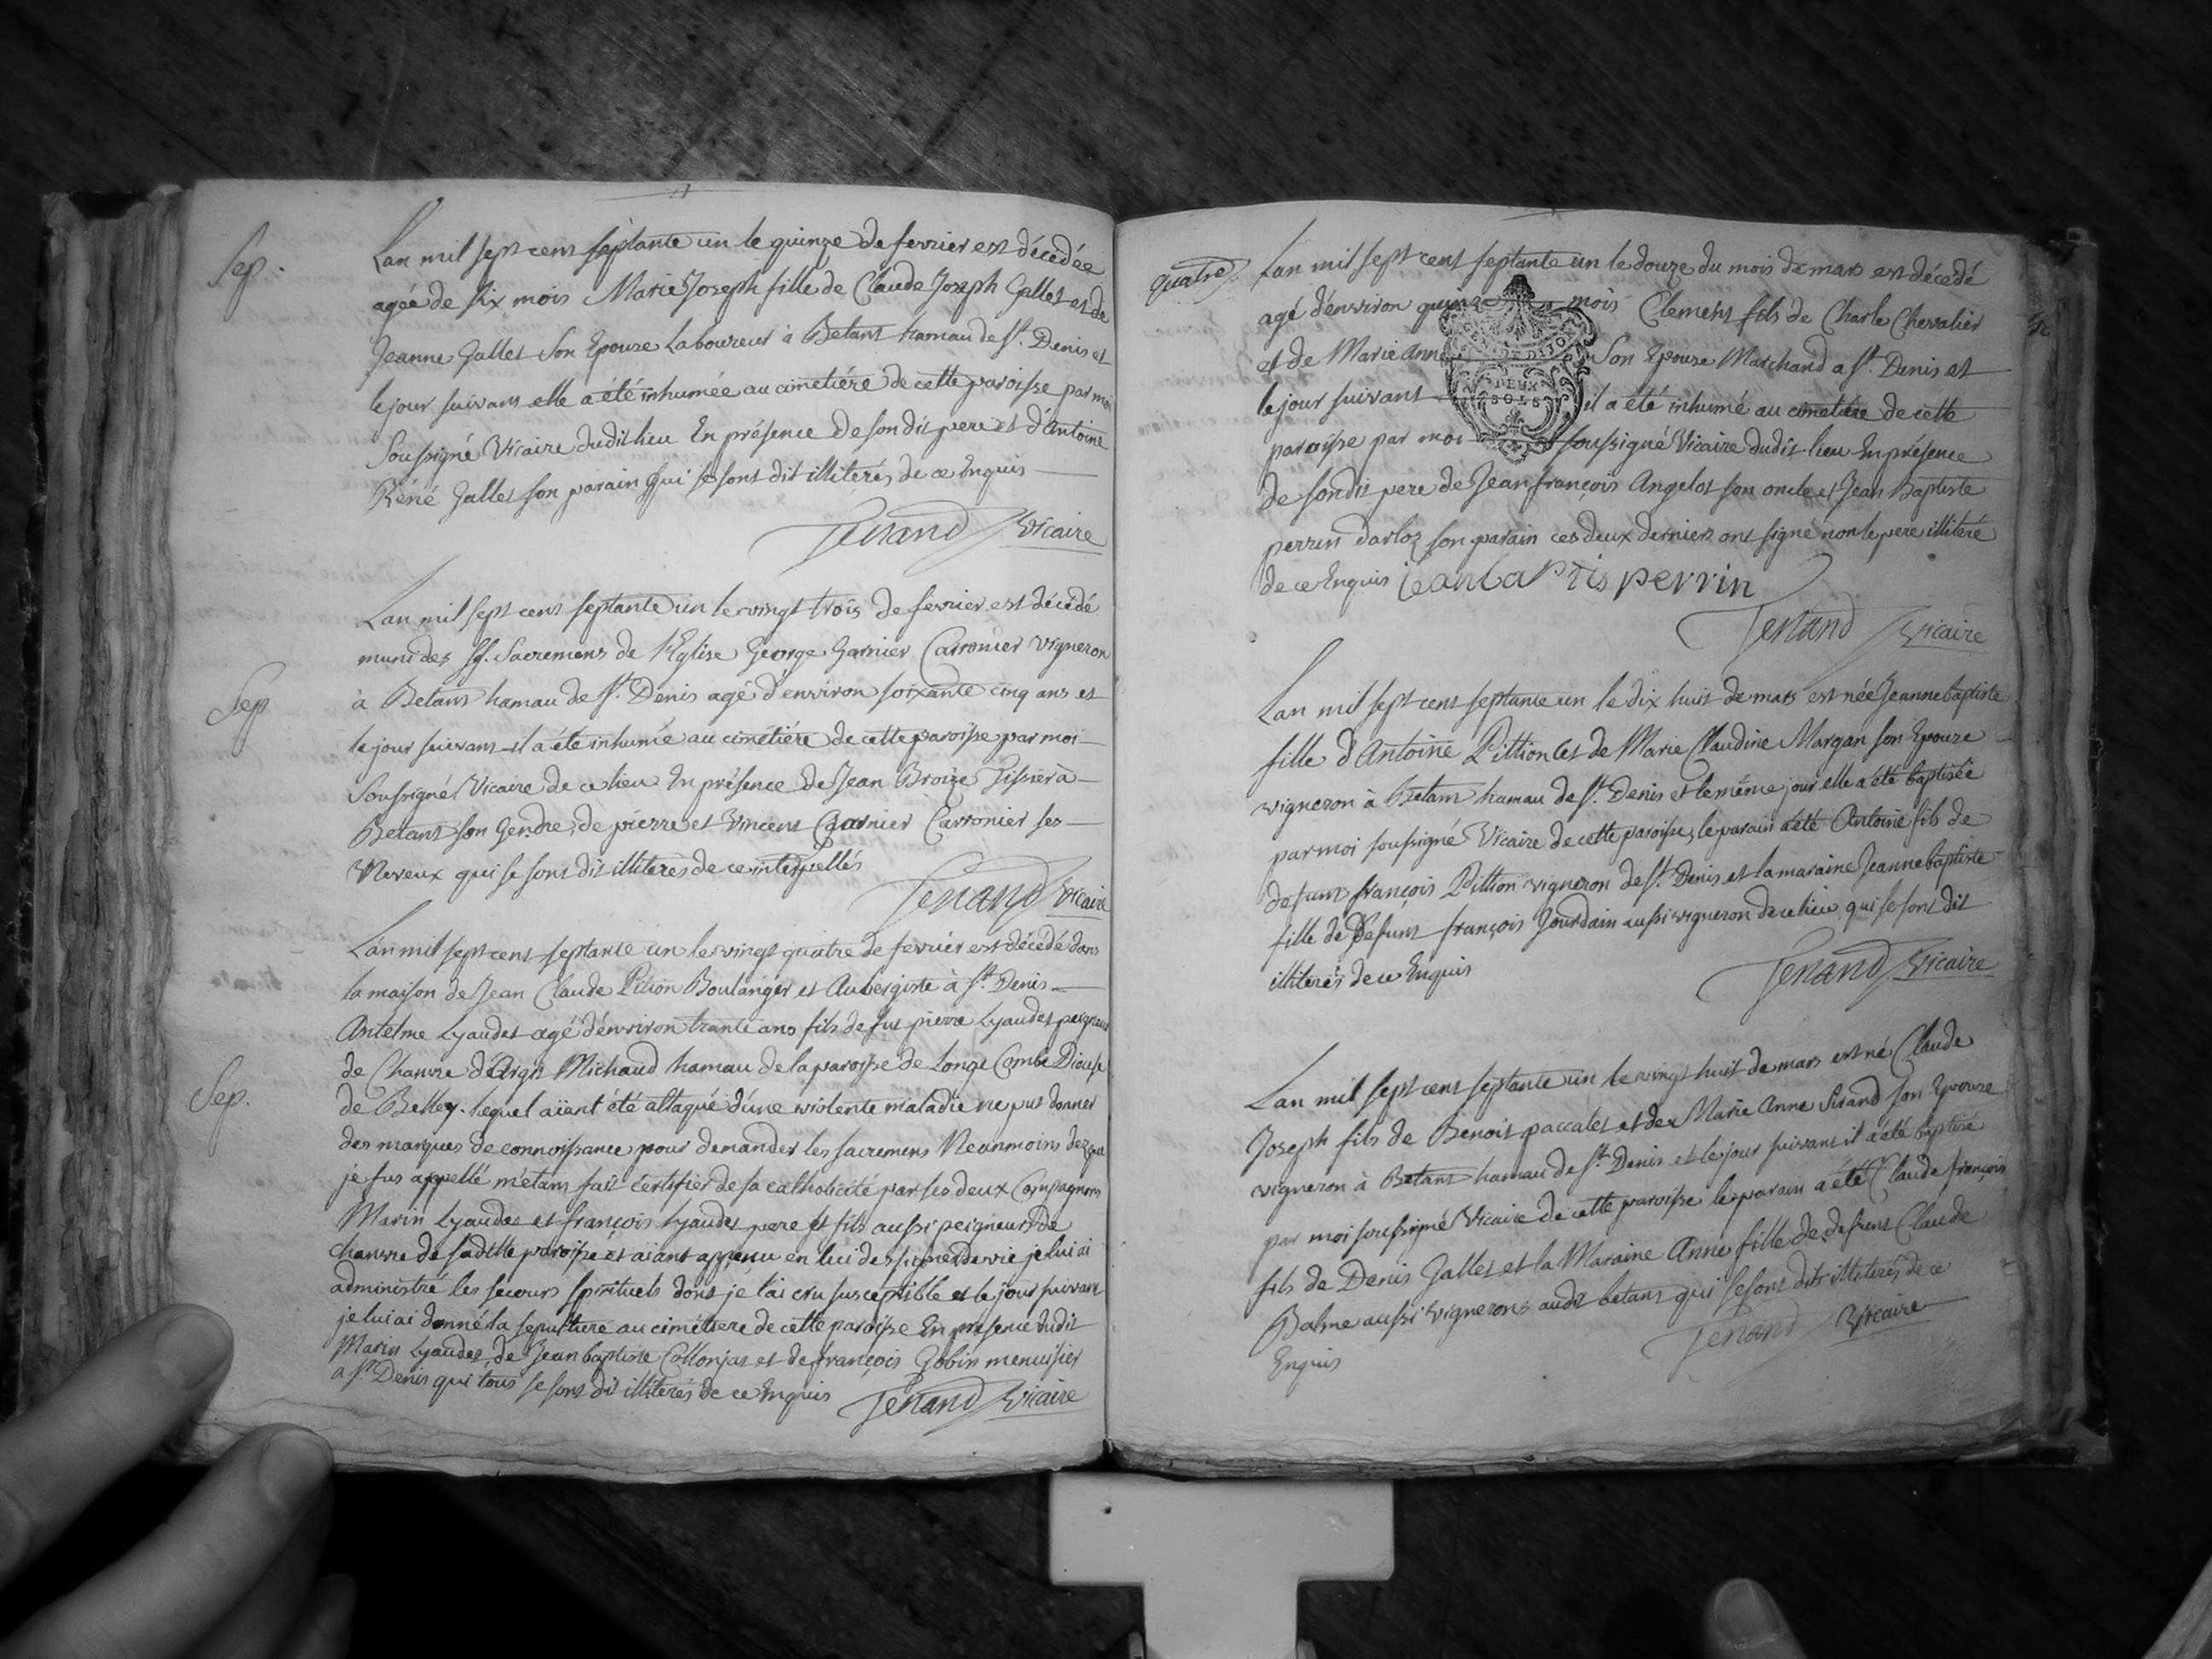 Sep.
Lan mil sept cent septante un le quinze de fevrier est décédée
agée de six mois Marie Joseph fille de Claude Joseph Gallet et de
Jeanne Gallet son Epouze Laboureur à Betant hamau de st. Denis et
le jour suivant elle a été inhumée au cimetiére de cette paroisse par moi
soussigné Vicaire dudit lieu En présence de son dit pere et d'antoine
Réné Gallet son parain qui se sont dit illiterés de ce Enquis
Tenand Vicaire
Lan mil sept cent septante un le vingt trois de fevrier est décédé
muni des ss. Sacremens de l'Eglise George Garnier Carronier vigneron
Sep
à Betant hamau de st. Denis agé d'environ soixante cinq ans et
le jour suivant il a été inhumé au cimétiére de cette paroisse par moi
soussigné Vicaire de ce lieu En présence de Jean Broize Tissier à
Betant son gendre, de pierre et Vincent Garnier Carronier ses
Neveux qui se sont dit illiterés de ce interpellés
Tenand Vicaire
Lan mil sept cent septante un le vingt quatre de fevrier est décédé dans
la maison de Jean Claude Pition Boulanger et Aubergiste à st. Denis
Antelme Lyaudet agé d'environ trante ans fils de fut pierre Lyaudet peigneur
de Chanvre d'Argis Michaud hamau de la paroisse de Longe Combe Diocese
Sep.
de Belley. lequel aïant été attaqué d'une violente maladie ne put donner
des marques de connoissance pour demander les sacremens Neanmoins dez que
je fus appellé m'étant fait certifier de sa catholicité par ses deux Compagnons
Marin Lyaudet et françois Lyaudet pere et fils aussi peigneurs de
chanvre de sadette paroisse et aïant apperçu en lui des signes de vie je lui ai
administré les secours spirituels dont je l'ai cru susceptible et le jour suivant
je lui ai donné la sepulture au cimétiere de cette paroisse En presence dudit
Marin Lyaudet, de Jean baptiste Collonjat et de françois Gobin menuisier
a st. Denis qui tous se sont dit illiterés de ce Enquis Tenand Vicaire
quatre.
Lan mil sept cent septante un le douze du mois de mars est décédé
agé d'environ quinze mois Clement fils de Charle Chevalier
et de Marie Anne son Epouze Marchand a st. Denis et
le jour suivant il a été inhumé au cimetiére de cette
DEUX
SOLS
paroisse par moi soussigné Vicaire dudit lieu En présence
de sondit pere de Jean françois Angelot son oncle et Jean Baptiste
perrin darloz son parain ces deux derniers ont signé non le pere illiteré
de ce Enquis jean baptis perrin
Tenand Vicaire
Lan mil sept cent septante un le dix huit de mars est née Jeanne baptiste
fille d'Antoine Pittion et de Marie Claudine Margan son Epouze
vigneron à Betant hamau de st. Denis et le même jour elle a été baptisée
par moi soussigné Vicaire de cette paroisse, le parain a été Antoine fils de
defunt françois Pittion vigneron de st. Denis et la maraine Jeanne baptiste
fille de Defunt françois Jourdain aussi vigneron de ce lieu qui se sont dit
illiterés de ce Enquis
Tenand Vicaire
Lan mil sept cent septante un le vingt huit de mars est né Claude
Joseph fils de Benoit paccalet et de Marie Anne Sirand son Epouze
vigneron à Betant hamau de st. Denis et le jour suivant il a été baptisé
par moi soussigné Vicaire de cette paroisse le parain a été Claude françois
fils de Denis Gallet et la Maraine Anne fille de defunt Claude
Balme aussi vignerons audit betant qui se sont dits illiterés de ce
Enquis
Tenand Vicaire